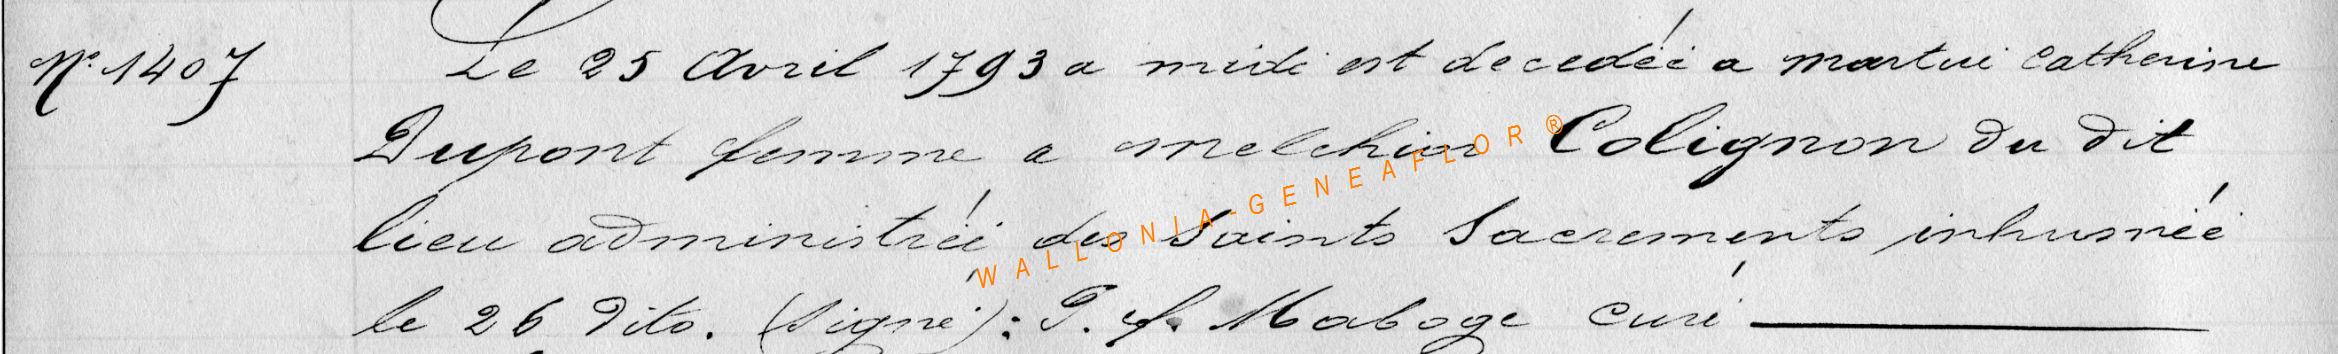 N° 1407 Le 25 Avril 1793 a midi est decedéé a martui Catherine
Dupont femme a melchior Colignon du dit
lieu administréé des Saints Sacrements inhuméé
le 26 dito. (Signé): P. f. Maboge curé
WALLONIA-GENEAFLOR®